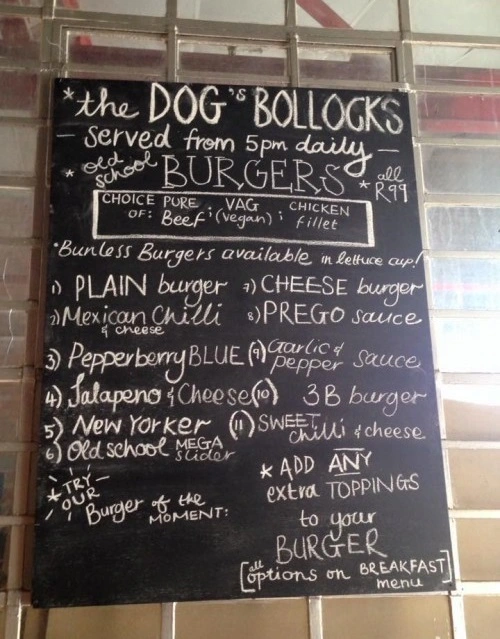 * the DOG's BOLLOCKS
- served from 5pm daily -
* old school BURGERS * all R99
CHOICE OF: PURE Beef; VAG (vegan); CHICKEN fillet
*Bunless Burgers available in lettuce cup!
1) PLAIN burger
2) Mexican Chilli & cheese
3) Pepperberry BLUE
4) Jalapeno & Cheese
5) New Yorker
6) Old school MEGA slider
7) CHEESE burger
8) PREGO sauce
(9) Garlic & pepper sauce
(10) 3B burger
(11) SWEET chilli & cheese
* TRY OUR
Burger of the MOMENT:
* ADD ANY
extra TOPPINGS
to your
BURGER
[all options on BREAKFAST menu]